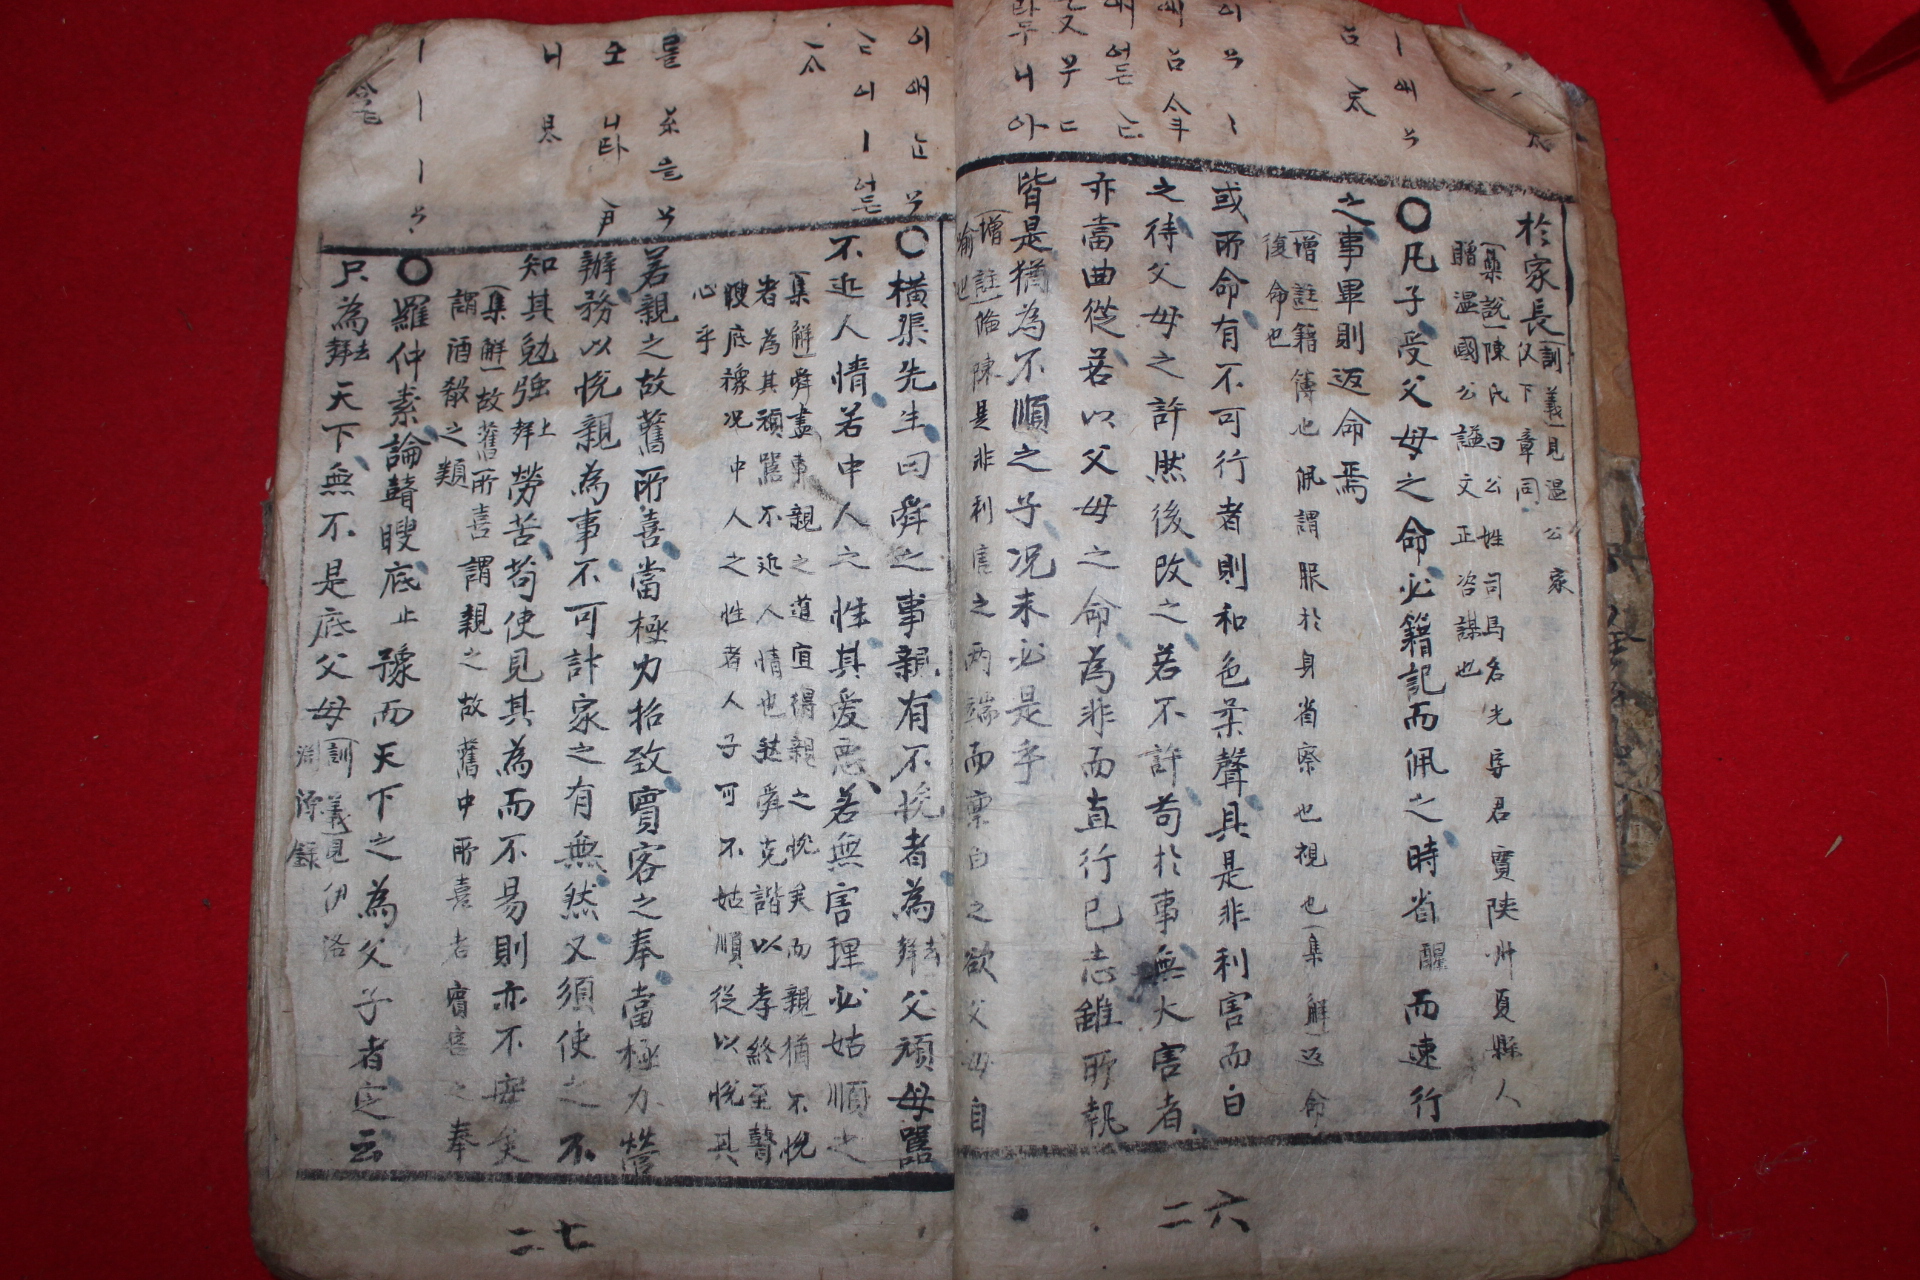 於家長[訓義]見溫公家
父下章同
[集說]陳氏曰公姓司馬名光字君實陝州夏縣人
贈溫國公謚文正咨謀也
○凡子受父母之命必籍記而佩之時省醒而速行
之事畢則返命焉
[增註]籍簿也佩謂服於身省察也視也[集解]返命
復命也
或所命有不可行者則和色柔聲具是非利害而白
之待父母之許然後改之若不許苟於事無大害者
亦當曲從若以父母之命為非而直行己志雖所執
皆是猶為不順之子况未必是乎
[增註]俻陳是非利害之兩端而稟白之欲父母自
喻也
二六
○橫渠先生曰舜之事親有不悅者為去聲父頑母嚚
不近人情若中人之性其愛惡若無害理必姑順之
[集解]舜盡事親之道宜得親之悅矣而親猶不悅
者為其頑嚚不近人情也然舜克諧以孝終至瞽
瞍底豫况中人之性者人子可不姑順從以悅其
心乎
若親之故舊所喜當極力招致賓客之奉當極力營
辦務以悅親為事不可計家之有無然又須使之不
知其勉強上聲勞苦苟使見其為而不易則亦不安矣
[集解]故舊所喜謂親之故舊中所喜者賓客之奉
謂酒殽之類
○羅仲素論瞽瞍底止豫而天下之為父子者定云
只為去聲天下無不是底父母[訓義]見伊洛
淵源錄
二七